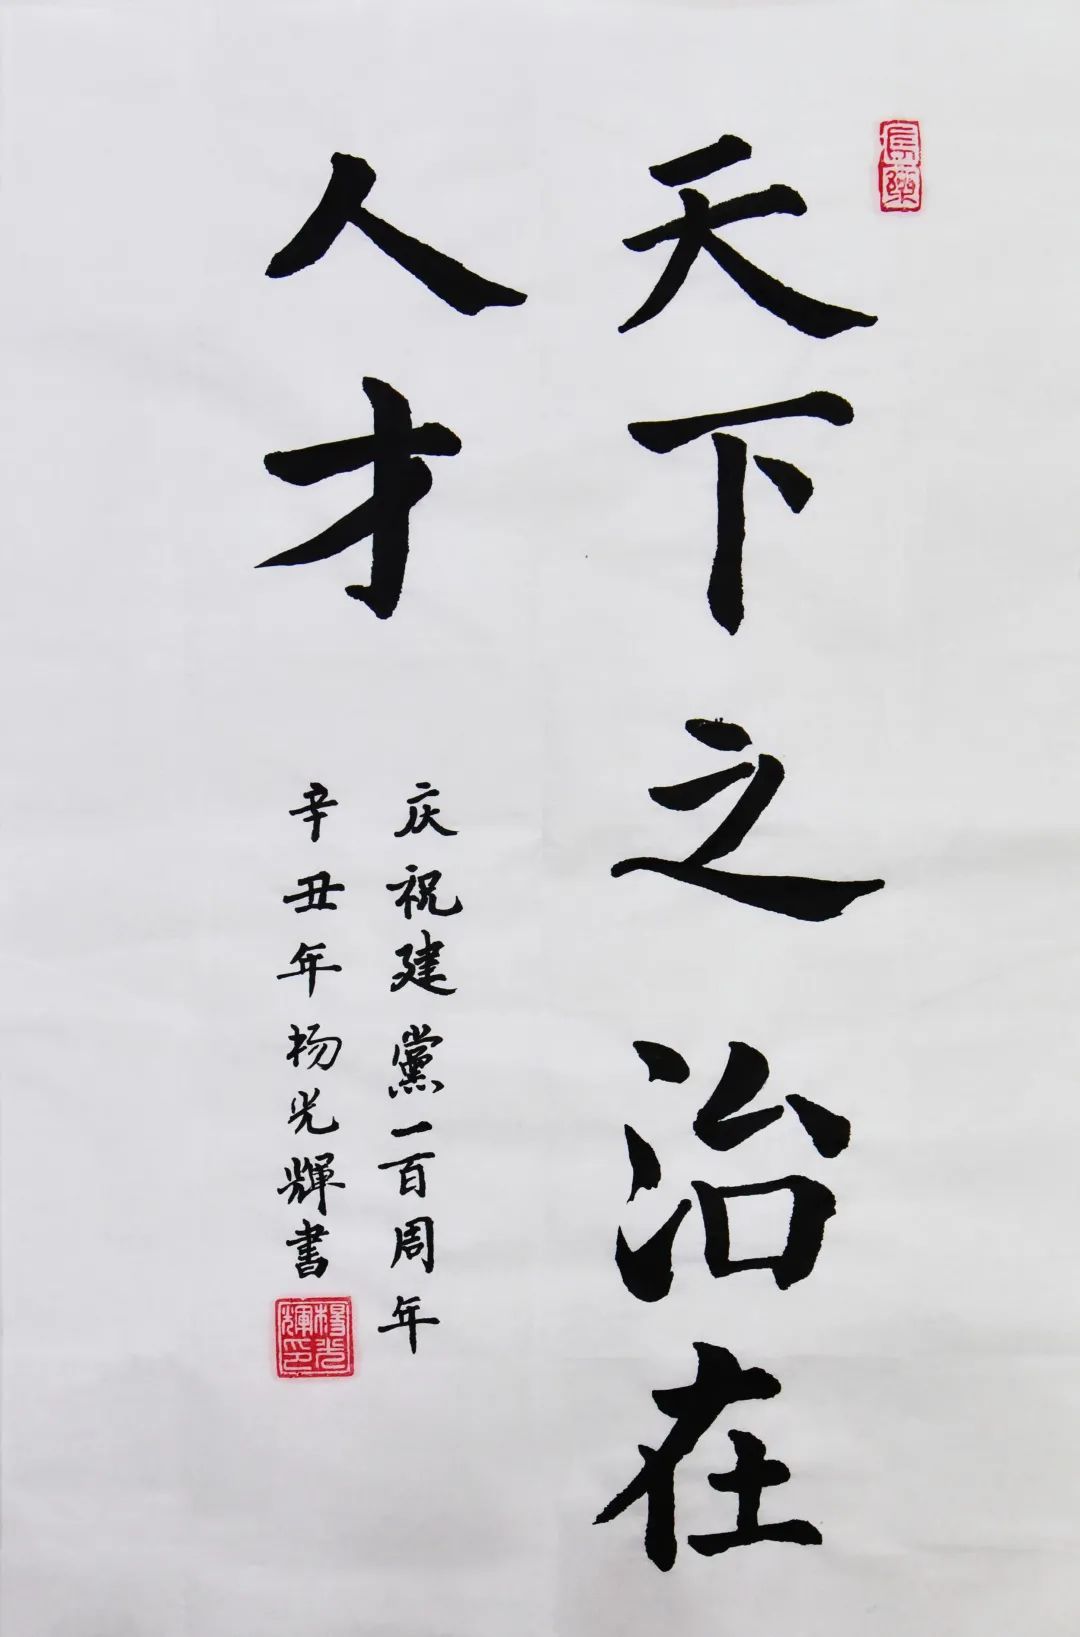 天下之治在
人才
庆祝建黨一百周年
辛丑年杨光輝書
楊光輝印